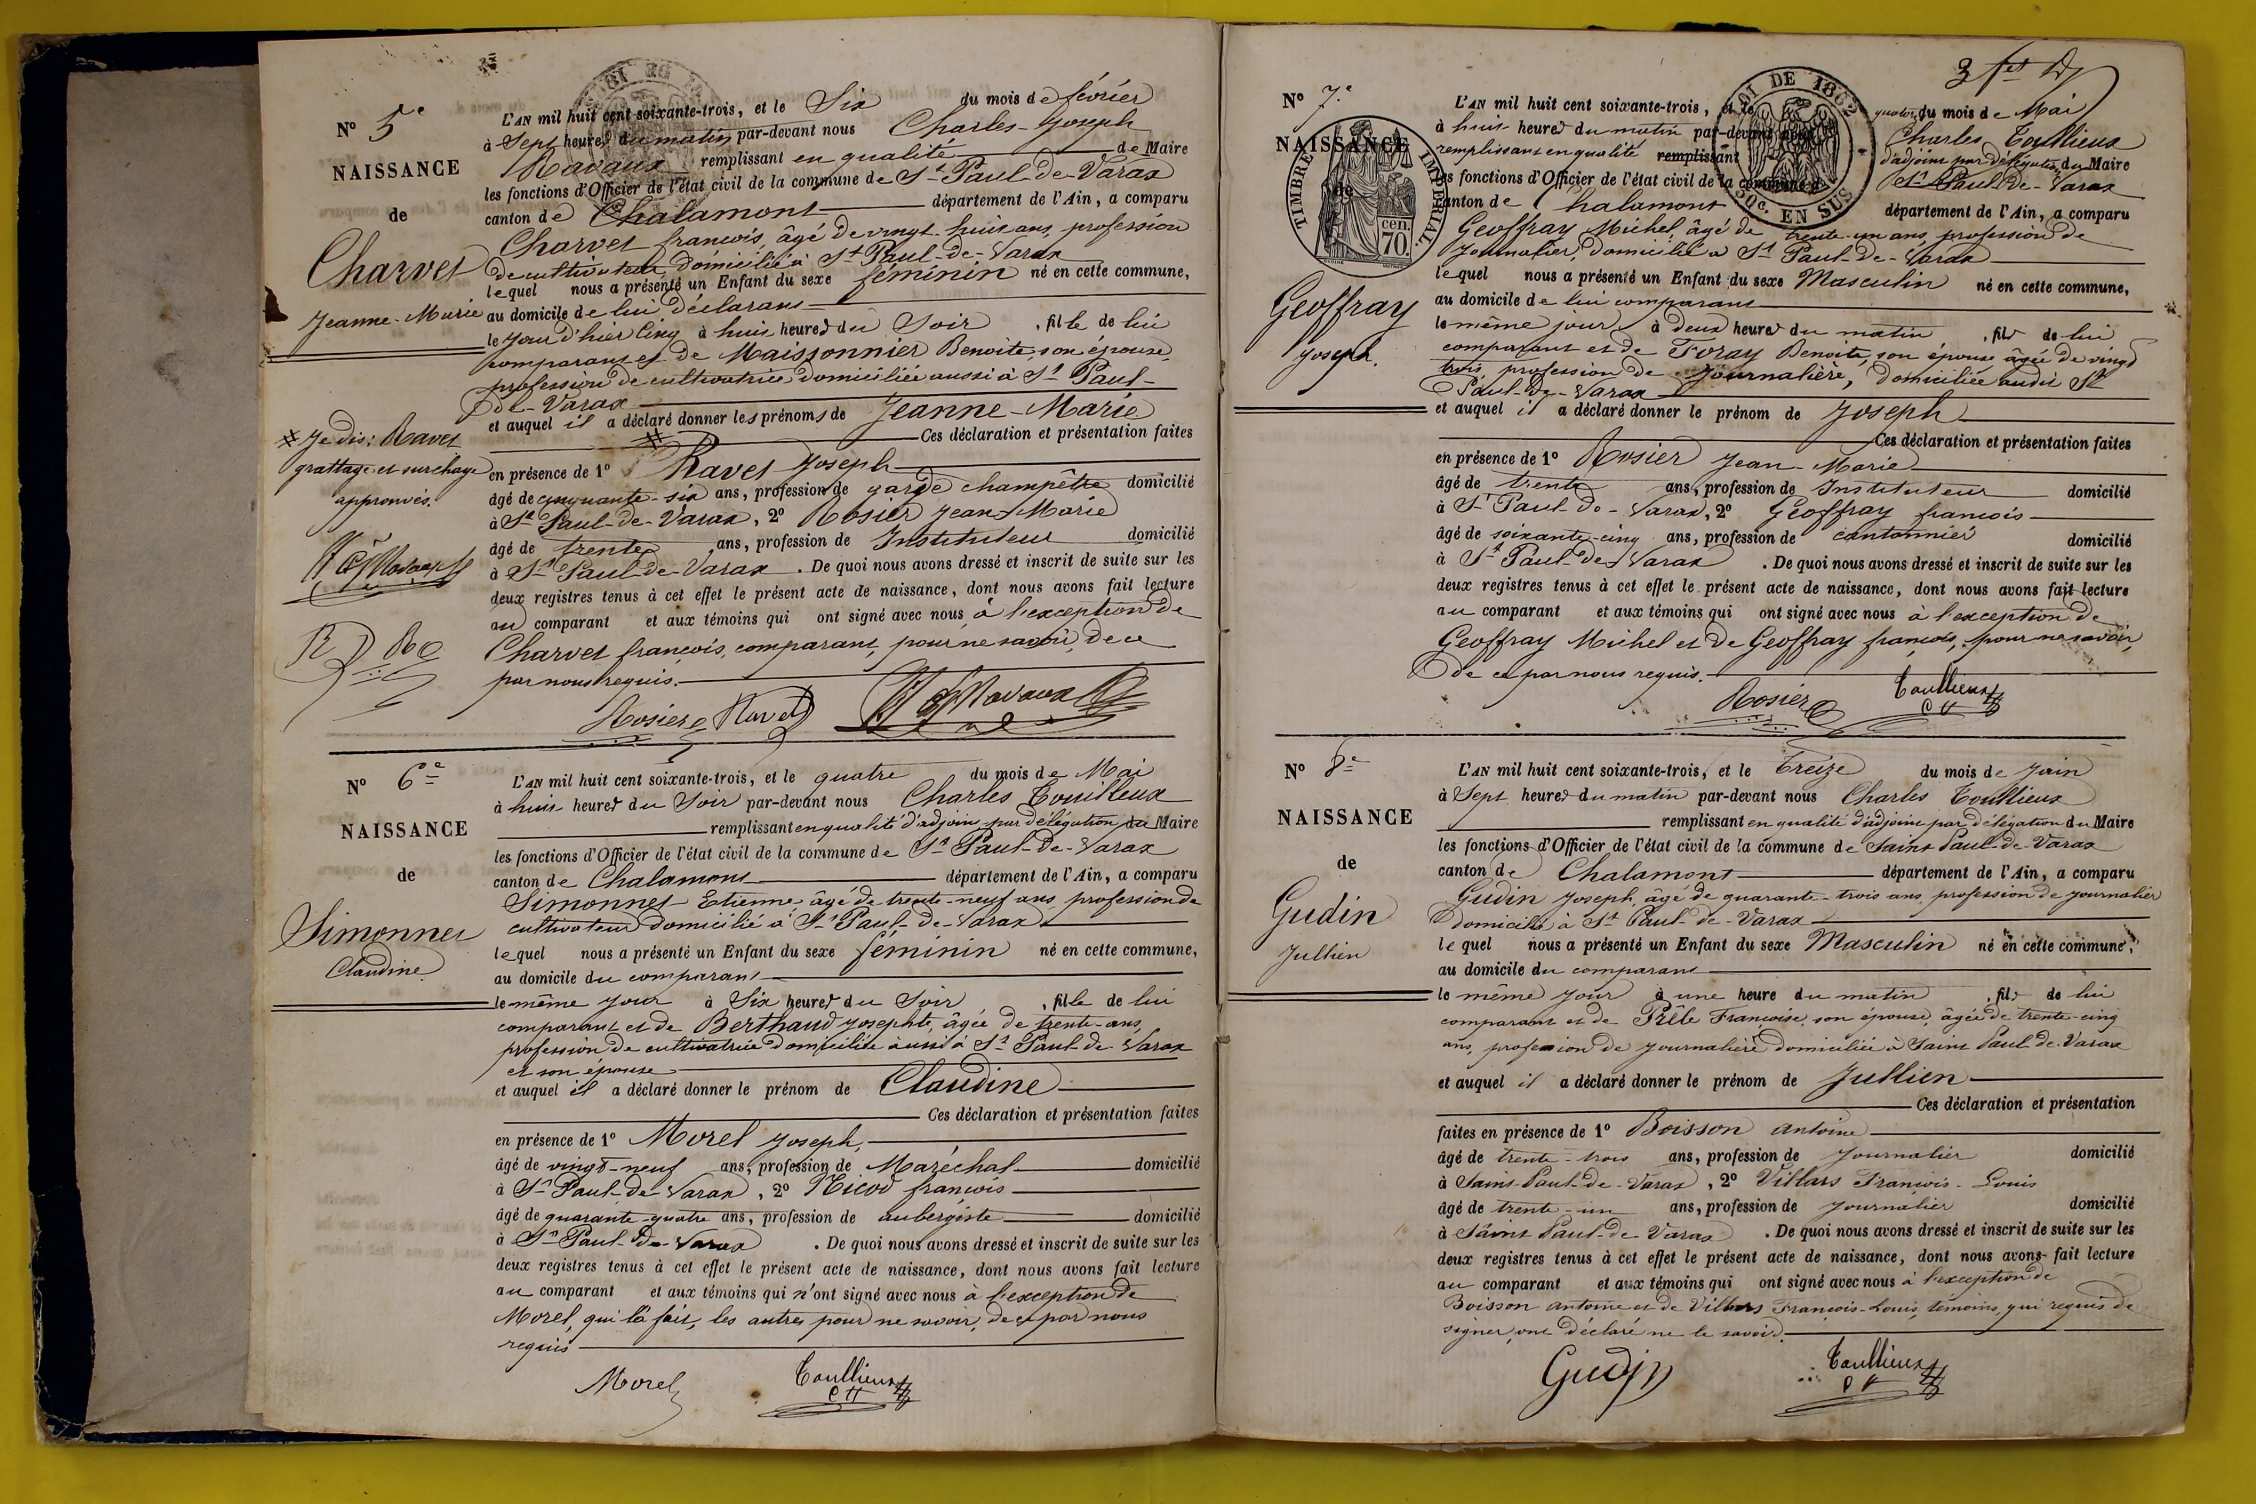 N° 5e
NAISSANCE
de
Charvet
Jeanne-Marie
L'AN mil huit cent soixante-trois, et le Six du mois de février
à Sept heures du matin par-devant nous Charles-Joseph
Ravaux remplissant en qualité de Maire
les fonctions d'Officier de l'état civil de la commune de St Paul-de-Varax
canton de Chalamont département de l'Ain, a comparu
Charvet françois, âgé de vingt-huit ans, profession
de cultivateur, domicilié à St Paul-de-Varax
lequel nous a présenté un Enfant du sexe féminin né en cette commune,
au domicile de lui déclarant
le jour d'hier Cinq à huit heures du Soir, fille de lui
comparant et de Maissonnier Benoite, son épouse,
profession de cultivatrice domiciliée aussi à St Paul-
de-Varax
et auquel il a déclaré donner les prénoms de Jeanne-Marie
# Ces déclaration et présentation faites
# Je dis: Ravet
grattage et surcharge
approuvés.
en présence de 1° Ravet Joseph
âgé de cinquante-six ans, profession de garde champêtre domicilié
à St Paul-de-Varax, 2° Rosier Jean-Marie
âgé de trente ans, profession de Instituteur domicilié
à St Paul-de-Varax. De quoi nous avons dressé et inscrit de suite sur les
deux registres tenus à cet effet le présent acte de naissance, dont nous avons fait lecture
au comparant et aux témoins qui ont signé avec nous à l'exception de
Charvet françois, comparant, pour ne savoir, de ce
par nous requis.
Rosier Ravet Ravaux
N° 6e
NAISSANCE
de
Simonnet
Claudine
L'AN mil huit cent soixante-trois, et le quatre du mois de Mai
à huit heures du Soir par-devant nous Charles Toullieux
remplissant en qualité d'adjoint par délégation du Maire
les fonctions d'Officier de l'état civil de la commune de St Paul-de-Varax
canton de Chalamont département de l'Ain, a comparu
Simonnet Etienne, âgé de trente-neuf ans, profession de
cultivateur domicilié à St Paul-de-Varax
lequel nous a présenté un Enfant du sexe féminin né en cette commune,
au domicile du comparant
le même jour à Six heures du Soir, fille de lui
comparant et de Berthaud Josephte, âgée de trente-ans,
profession de cultivatrice domiciliée aussi à St Paul-de-Varax
et son épouse
et auquel il a déclaré donner le prénom de Claudine
Ces déclaration et présentation faites
en présence de 1° Morel Joseph,
âgé de vingt-neuf ans, profession de Maréchal domicilié
à St Paul-de-Varax, 2° Nicod françois
âgé de quarante-quatre ans, profession de aubergiste domicilié
à St Paul-de-Varax. De quoi nous avons dressé et inscrit de suite sur les
deux registres tenus à cet effet le présent acte de naissance, dont nous avons fait lecture
au comparant et aux témoins qui n'ont signé avec nous à l'exception de
Morel, qui l'a fait, les autres pour ne savoir, de ce par nous
requis
Morel Toullieux
3 fet
N° 7e
NAISSANCE
de
TIMBRE IMPERIAL
cen. 70.
LOI DE 1862
50c. EN SUS
Geoffray
Joseph.
L'AN mil huit cent soixante-trois, et le quatorze du mois de Mai
à huit heures du matin par-devant nous Charles Toullieux
remplissant en qualité remplissant d'adjoint par délégation du Maire
les fonctions d'Officier de l'état civil de la commune de St Paul-de-Varax
canton de Chalamont département de l'Ain, a comparu
Geoffray Michel, âgé de trente-un ans, profession de
Journalier, domicilié à St Paul-de-Varax
lequel nous a présenté un Enfant du sexe Masculin né en cette commune,
au domicile de lui comparant
le même jour à deux heures du matin, fils de lui
comparant et de Foray Benoite, son épouse âgée de vingt
trois, profession de Journalière, domiciliée audit St
Paul-de-Varax
et auquel il a déclaré donner le prénom de Joseph
Ces déclaration et présentation faites
en présence de 1° Rosier Jean-Marie
âgé de trente ans, profession de Instituteur domicilié
à St Paul-de-Varax, 2° Geoffray françois
âgé de soixante-cinq ans, profession de cantonnier domicilié
à St Paul-de-Varax. De quoi nous avons dressé et inscrit de suite sur les
deux registres tenus à cet effet le présent acte de naissance, dont nous avons fait lecture
au comparant et aux témoins qui ont signé avec nous à l'exception de
Geoffray Michel et de Geoffray françois, pour ne savoir,
de ce par nous requis.
Rosier Toullieux
N° 8e
NAISSANCE
de
Gudin
Jullien
L'AN mil huit cent soixante-trois, et le Treize du mois de Juin
à Sept heures du matin par-devant nous Charles Toullieux
remplissant en qualité d'adjoint par délégation du Maire
les fonctions d'Officier de l'état civil de la commune de Saint Paul-de-Varax
canton de Chalamont département de l'Ain, a comparu
Gudin Joseph, âgé de quarante-trois ans, profession de Journalier
domicilié à St Paul-de-Varax
lequel nous a présenté un Enfant du sexe Masculin né en cette commune,
au domicile du comparant
le même jour à une heure du matin, fils de lui
comparant et de Prêle Françoise, son épouse, âgée de trente-cinq
ans, profession de Journalière domiciliée à Saint Paul-de-Varax
et auquel il a déclaré donner le prénom de Jullien
Ces déclaration et présentation
faites en présence de 1° Boisson antoine
âgé de trente-trois ans, profession de Journalier domicilié
à Saint-Paul-de-Varax, 2° Villars François-Louis
âgé de trente-un ans, profession de Journalier domicilié
à Saint Paul-de-Varax. De quoi nous avons dressé et inscrit de suite sur les
deux registres tenus à cet effet le présent acte de naissance, dont nous avons fait lecture
au comparant et aux témoins qui ont signé avec nous à l'exception de
Boisson antoine et de Villars François-Louis, témoins, qui requis de
signer, ont déclaré ne le savoir.
Gudin Toullieux